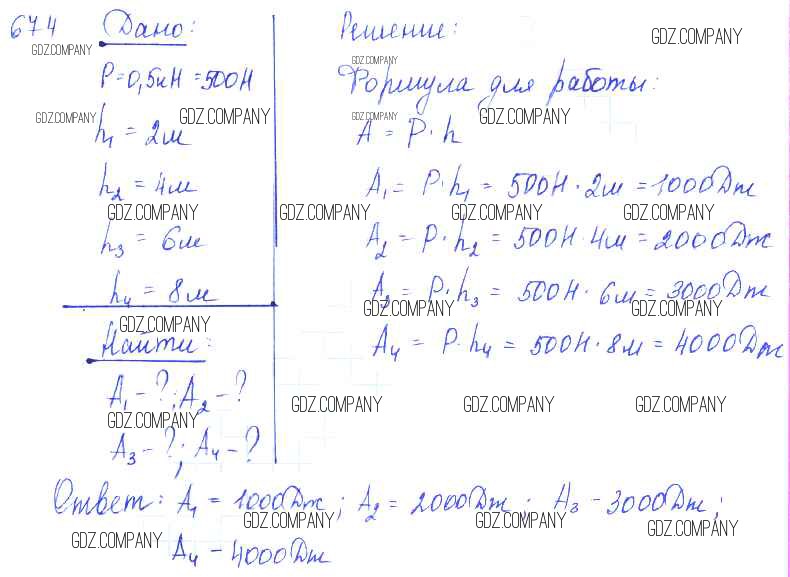 674 Дано:
GDZ.COMPANY
P=0,5кН=500Н
GDZ.COMPANY GDZ.COMPANY
h₁ = 2м
h₂ = 4м
GDZ.COMPANY
h₃ = 6м
h₄ = 8м
GDZ.COMPANY
Найти:
A₁-?; A₂-?
GDZ.COMPANY
A₃-?; A₄-?
Решение:
GDZ.COMPANY
GDZ.COMPANY
Формула для работы:
GDZ.COMPANY GDZ.COMPANY
A = P·h
A₁ = P·h₁ = 500Н·2м = 1000Дж
GDZ.COMPANY GDZ.COMPANY GDZ.COMPANY
A₂ = P·h₂ = 500Н·4м = 2000Дж
A₃ = P·h₃ = 500Н·6м = 3000Дж
GDZ.COMPANY GDZ.COMPANY GDZ.COMPANY
A₄ = P·h₄ = 500Н·8м = 4000Дж
GDZ.COMPANY GDZ.COMPANY GDZ.COMPANY
Ответ: A₁ = 1000Дж; A₂ = 2000Дж; A₃ - 3000Дж;
GDZ.COMPANY GDZ.COMPANY GDZ.COMPANY
GDZ.COMPANY
A₄ - 4000Дж